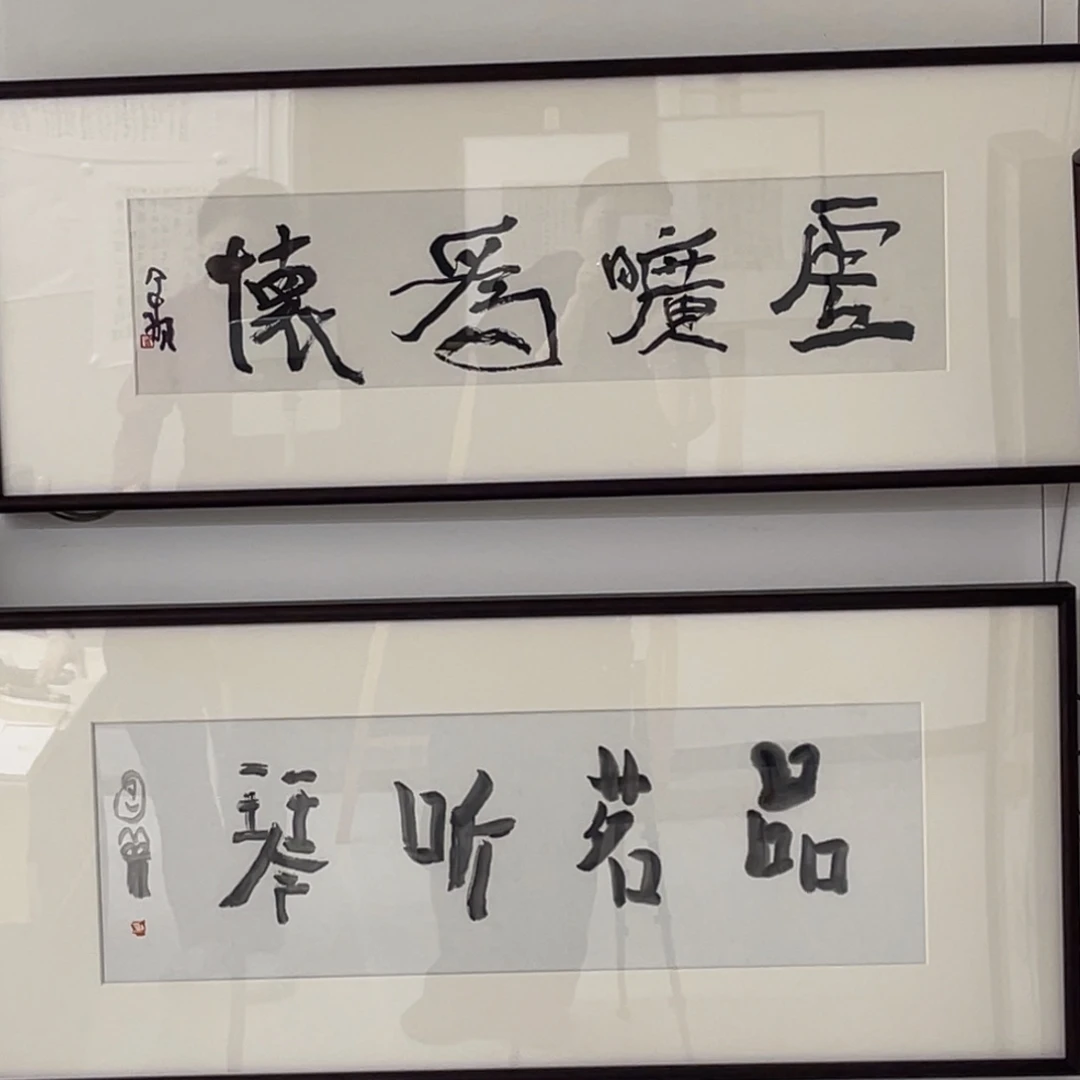 虚曠爲懷
品茗听琴